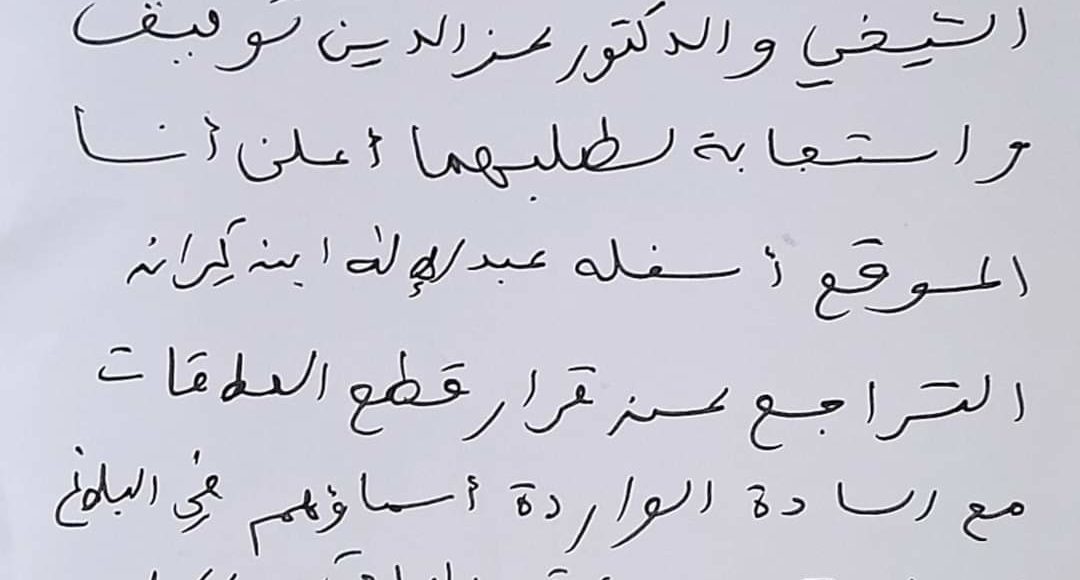 الشيخي والدكتور عز الدين توفيق
واستجابة لطلبهما أعلن أنا
الموقع أسفله عبد الإله ابنه كيرانه
التراجع عن قرار قطع العلاقات
مع السادة الواردة أسماؤهم في البلاغ